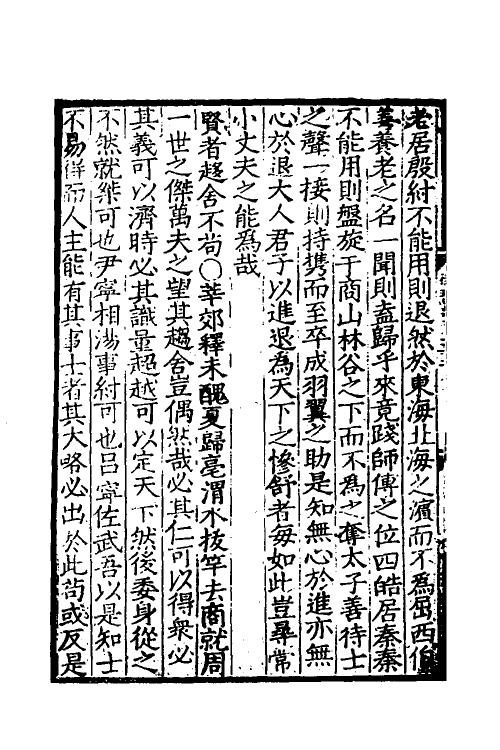 老居殷紂不能用則退然於東海北海之濵而不為屈西伯
善養老之名一聞則盍歸乎來竟踐師傅之位四皓居秦秦
不能用則盤旋于商山林谷之下而不為之奪太子善待士
之聲一接則持攜而至卒成羽翼之助是知無心於進亦無
心於退大人君子以進退為天下之慘舒者每如此豈尋常
小丈夫之能為哉
賢者趍舍不茍○莘郊釋耒醜夏歸亳渭水投竿去商就周
一世之傑萬夫之望其趨舍豈偶然哉必其仁可以得衆必
其義可以濟時必其識量超越可以定天下然後委身從之
不然就桀可也尹寧相湯事紂可也吕寧佐武吾以是知士
不易得而人主能有其事士者其大略必出於此茍或反是